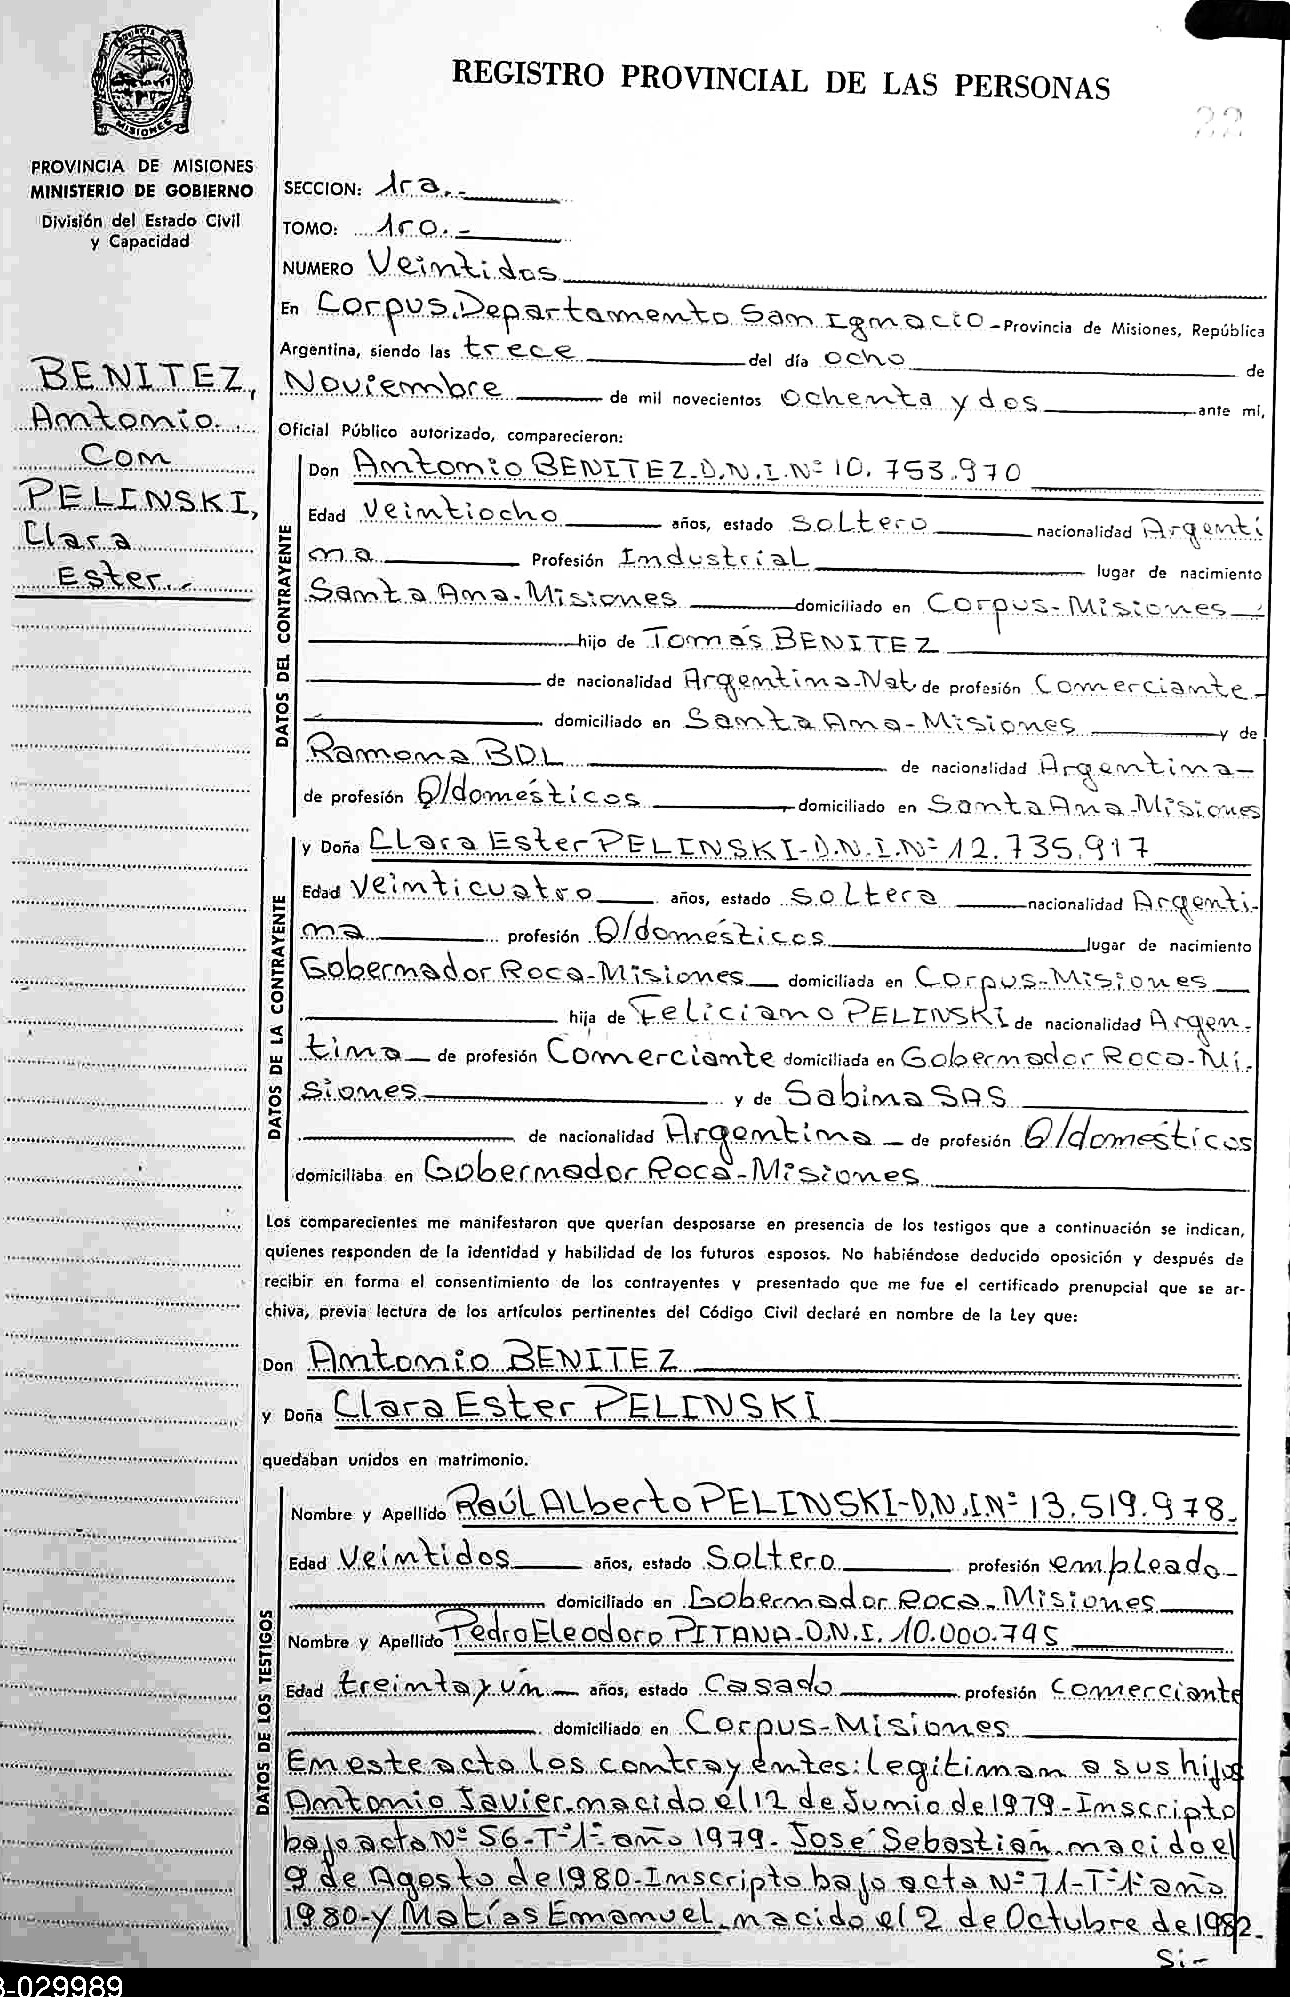 REGISTRO PROVINCIAL DE LAS PERSONAS
22
MISIONES
PROVINCIA DE MISIONES
MINISTERIO DE GOBIERNO
División del Estado Civil
y Capacidad
BENITEZ,
Antonio.
Con
PELINSKI,
Clara
Ester.-
SECCION: 1ra.-
TOMO: 1ro.-
NUMERO Veintidos
En Corpus.Departamento San Ignacio-Provincia de Misiones, República
Argentina, siendo las trece del día ocho de
Noviembre de mil novecientos ochenta y dos ante mí,
Oficial Público autorizado, comparecieron:
DATOS DEL CONTRAYENTE
Don Antonio BENITEZ.D.N.I.Nº 10.753.970
Edad veintiocho años, estado soltero nacionalidad Argenti
na Profesión Industrial lugar de nacimiento
Santa Ana-Misiones domiciliado en Corpus-Misiones
hijo de Tomás BENITEZ
de nacionalidad Argentina-Nat. de profesión Comerciante-
domiciliado en Santa Ana-Misiones y de
Ramona BDL de nacionalidad Argentina-
de profesión Q/domésticos domiciliado en Santa Ana-Misiones
DATOS DE LA CONTRAYENTE
y Doña Clara Ester PELINSKI-D.N.I.Nº 12.735.917
Edad Veinticuatro años, estado soltera nacionalidad Argenti-
na profesión Q/domésticos lugar de nacimiento
Gobernador Roca-Misiones domiciliada en Corpus-Misiones
hija de Feliciano PELINSKI de nacionalidad Argen-
tina de profesión Comerciante domiciliada en Gobernador Roca-Mi-
siones y de Sabina SAS
de nacionalidad Argentina de profesión Q/domésticos
domiciliaba en Gobernador Roca-Misiones
Los comparecientes me manifestaron que querían desposarse en presencia de los testigos que a continuación se indican,
quienes responden de la identidad y habilidad de los futuros esposos. No habiéndose deducido oposición y después de
recibir en forma el consentimiento de los contrayentes y presentado que me fue el certificado prenupcial que se ar-
chiva, previa lectura de los artículos pertinentes del Código Civil declaré en nombre de la Ley que:
Don Antonio BENITEZ
y Doña Clara Ester PELINSKI
quedaban unidos en matrimonio.
DATOS DE LOS TESTIGOS
Nombre y Apellido Raúl Alberto PELINSKI-D.N.I.Nº 13.519.978.
Edad Veintidos años, estado Soltero profesión empleado-
domiciliado en Gobernador Roca-Misiones
Nombre y Apellido Pedro Eleodoro PITANA-D.N.I. 10.000.795
Edad treinta y ún años, estado Casado profesión Comerciante
domiciliado en Corpus-Misiones
En este acto los contrayentes:legitiman a sus hijos
Antonio Javier, nacido el 12 de Junio de 1979-Inscripto
bajo acta Nº 56-Tº1º año 1979-José Sebastián, nacido el
9 de Agosto de 1980-Inscripto bajo acta Nº 71-Tº1º año
1980-y Matías Emanuel, nacido el 2 de Octubre de 1982-
Si-
3-029989